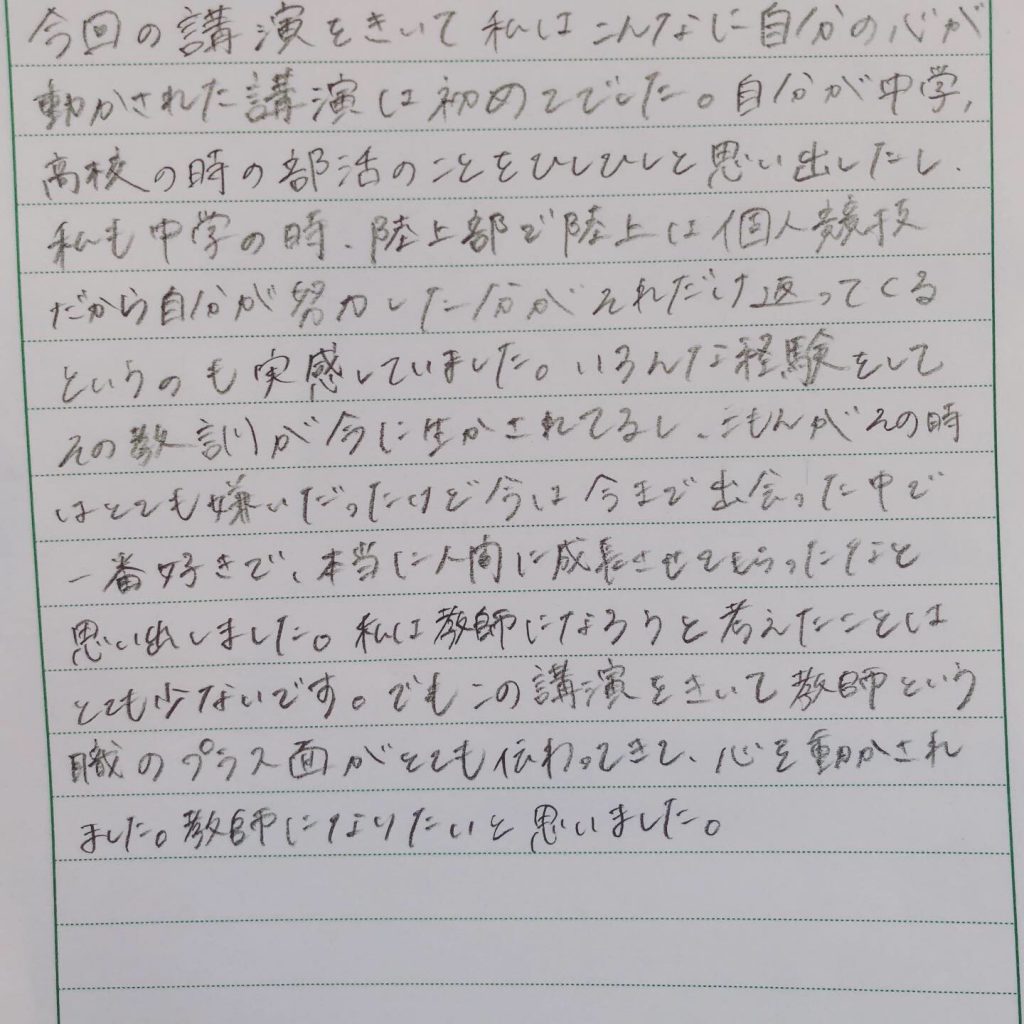 今回の講演をきいて私はこんなに自分の心が
動かされた講演は初めてでした。自分が中学,
高校の時の部活のことをひしひしと思い出したし、
私も中学の時、陸上部で陸上は個人競技
だから自分が努力した分がそれだけ返ってくる
というのも実感していました。いろんな経験をして
その教訓が今に生かされてるし、こもんがその時
はとても嫌いだったけど今は今まで出会った中で
一番好きで、本当に人間に成長させてもらったなと
思い出しました。私は教師になろうと考えたことは
とても少ないです。でもこの講演をきいて教師という
職のプラス面がとても伝わってきて、心を動かされ
ました。教師になりたいと思いました。